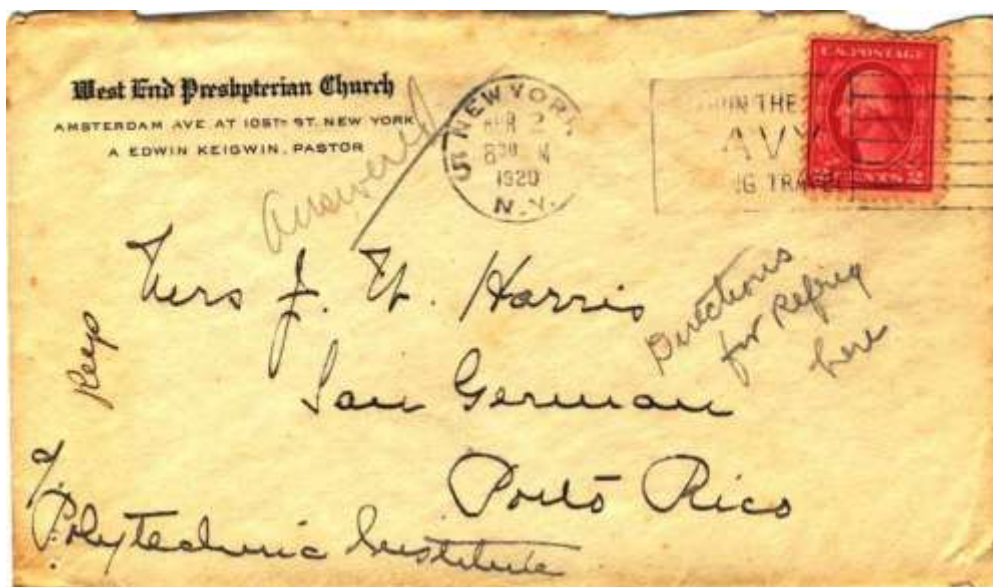 West End Presbyterian Church
AMSTERDAM AVE AT 105TH ST. NEW YORK
A EDWIN KEIGWIN, PASTOR
Answered
NEW YORK
APR 2
1920
N.Y.
U.S. POSTAGE
THE
AVY
CENTS 2
Mrs J. W. Harris
San German
Porto Rico
Directions
for
here
Keep
Polytechnic Institute